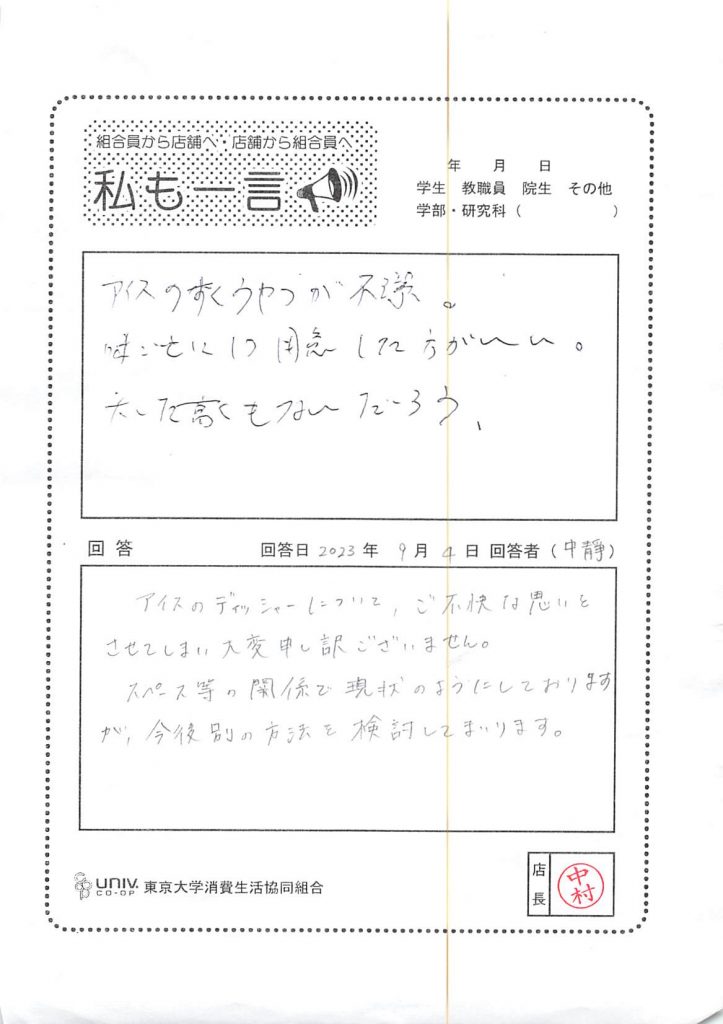 組合員から店舗へ・店舗から組合員へ
私も一言
年 月 日
学生 教職員 院生 その他
学部・研究科（ ）
アイスのすくうやつが不潔。
味ごとに1つ用意した方がいい。
大した高くもないだろう、
回答 回答日 2023年 9月 4日 回答者（中静）
アイスのディッシャーについて、ご不快な思いを
させてしまい大変申し訳ございません。
スペース等の関係で現状のようにしております
が、今後別の方法を検討してまいります。
UNIV. CO-OP 東京大学消費生活協同組合
店長 中村